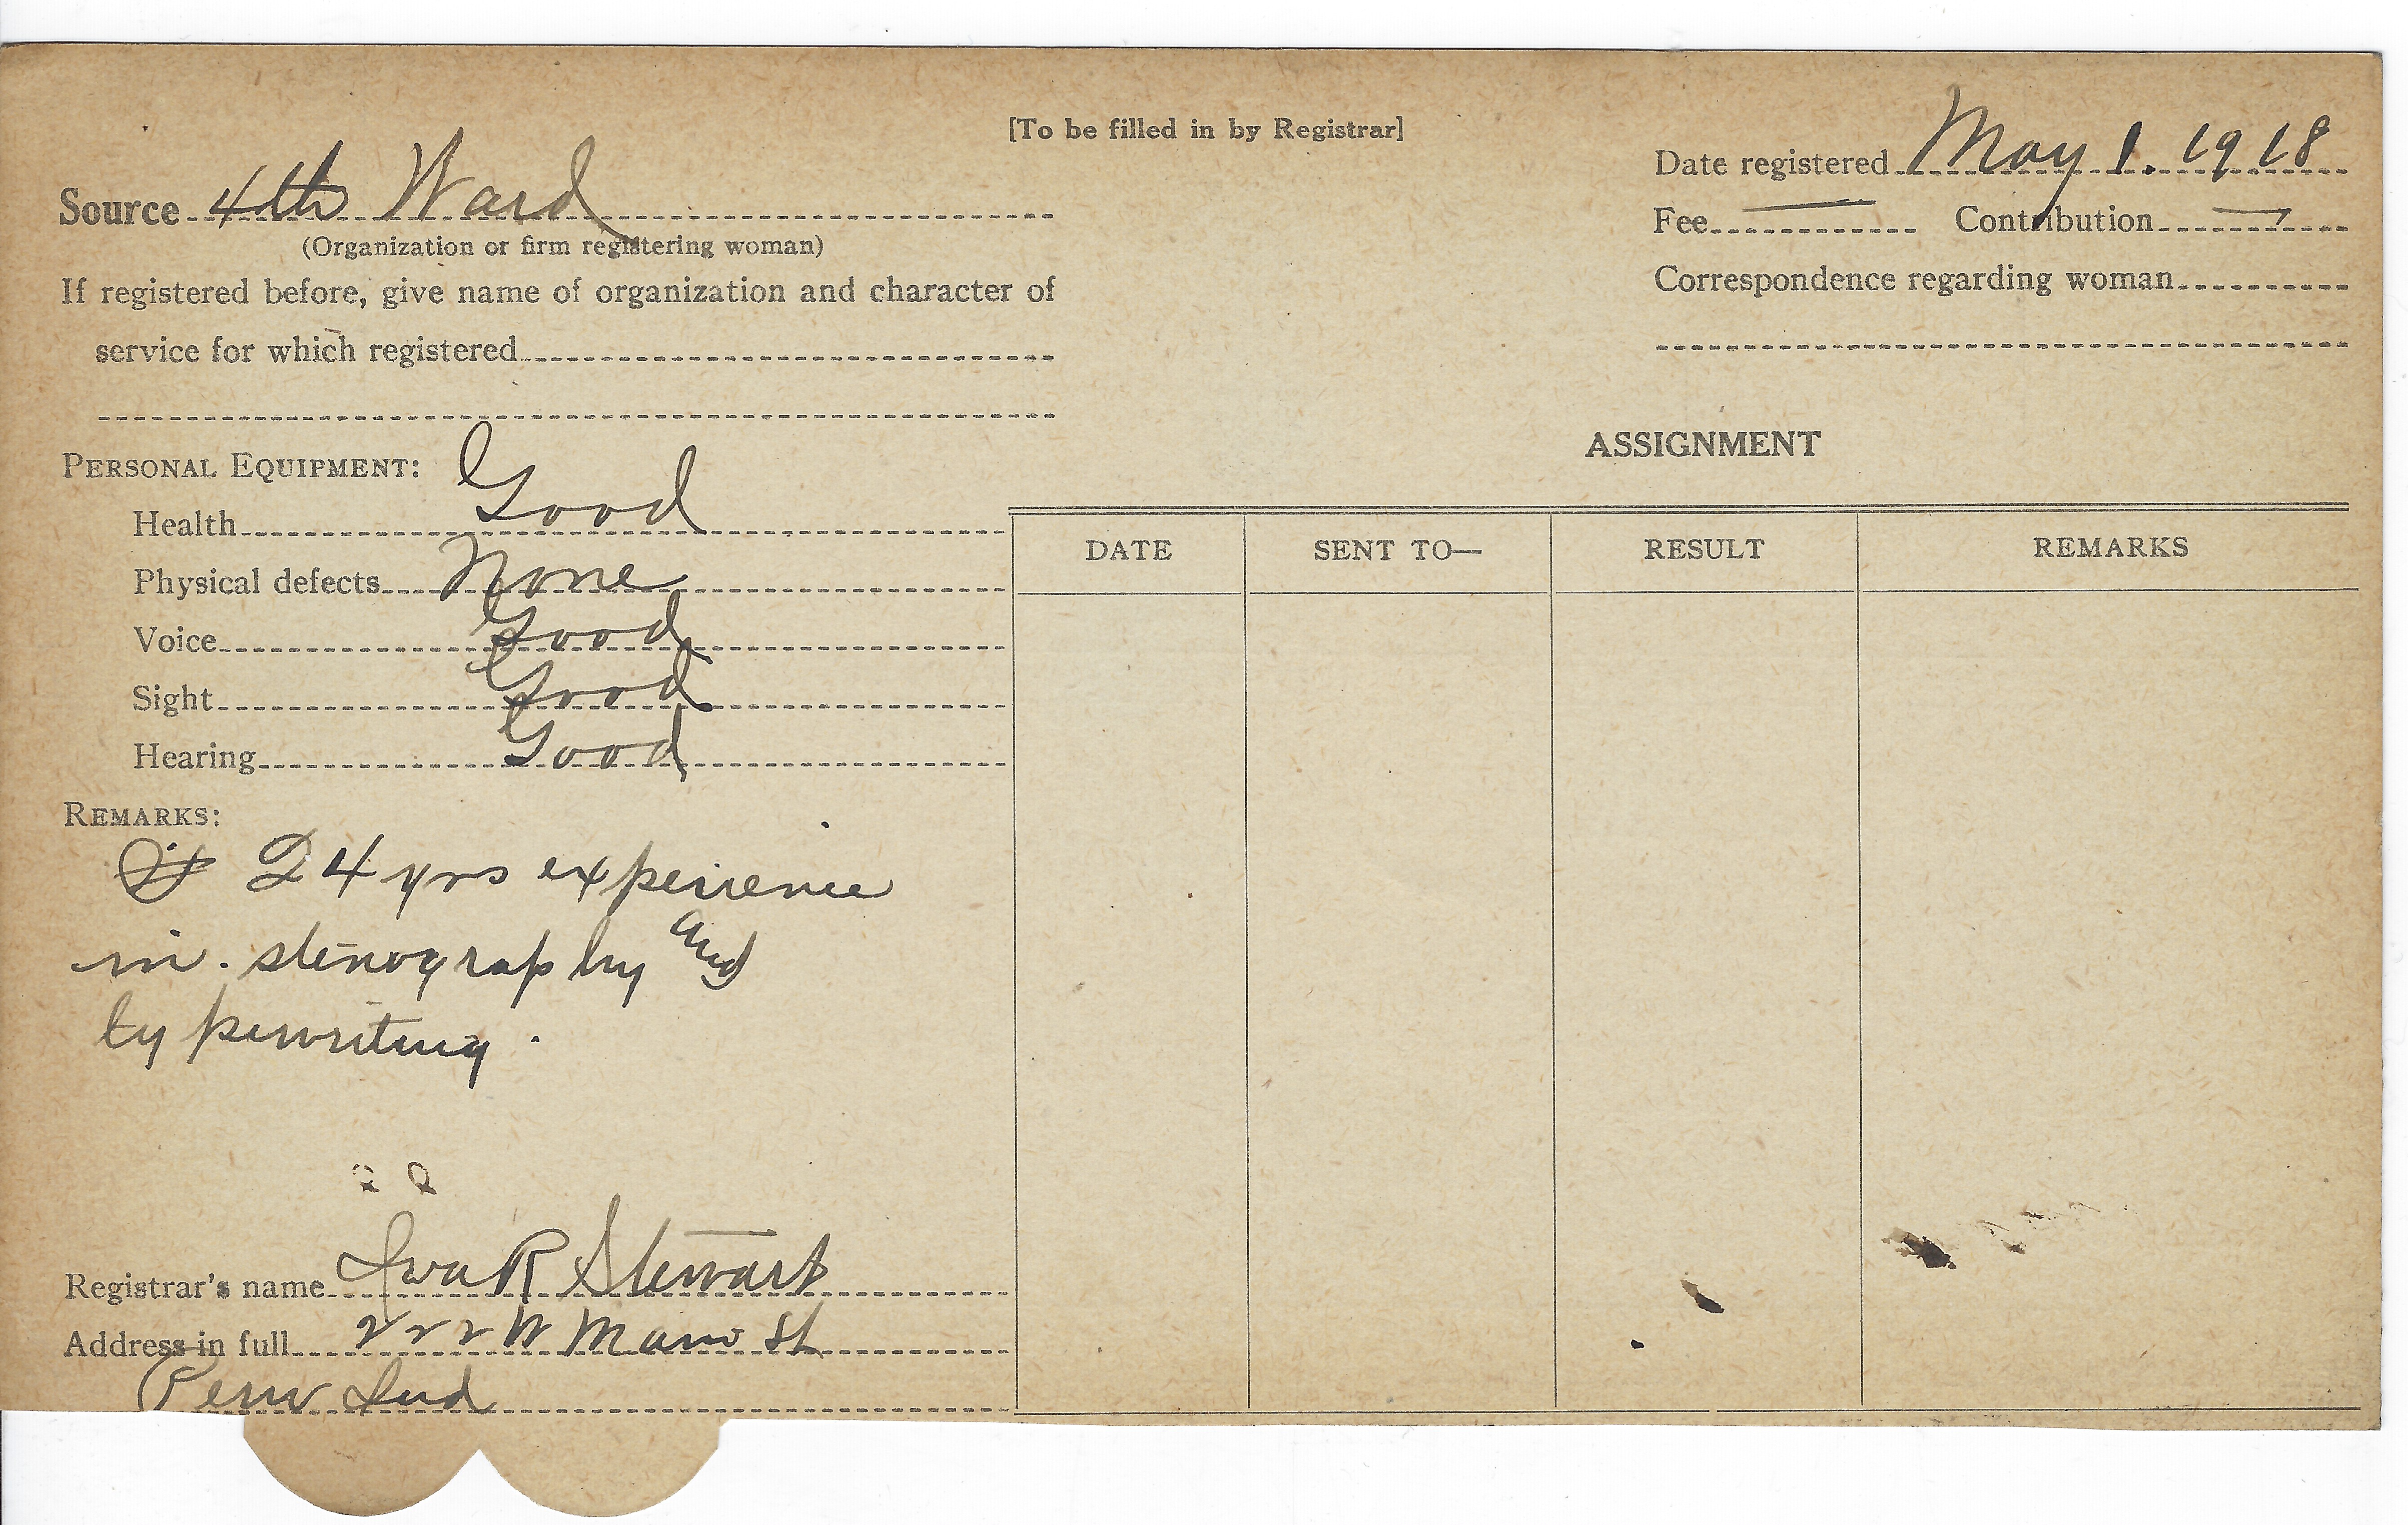 [To be filled in by Registrar]
Source 4th Ward
(Organization or firm registering woman)
If registered before, give name of organization and character of
service for which registered
Date registered May 1. 1918
Fee — Contribution —
Correspondence regarding woman
PERSONAL EQUIPMENT:
Health Good
Physical defects None
Voice Good
Sight Good
Hearing Good
REMARKS:
24 yrs experience
in. stenography and
typewriting.
Registrar's name Iva R Stewart
Address in full 222 W Main St
Peru Ind
ASSIGNMENT
DATE SENT TO— RESULT REMARKS